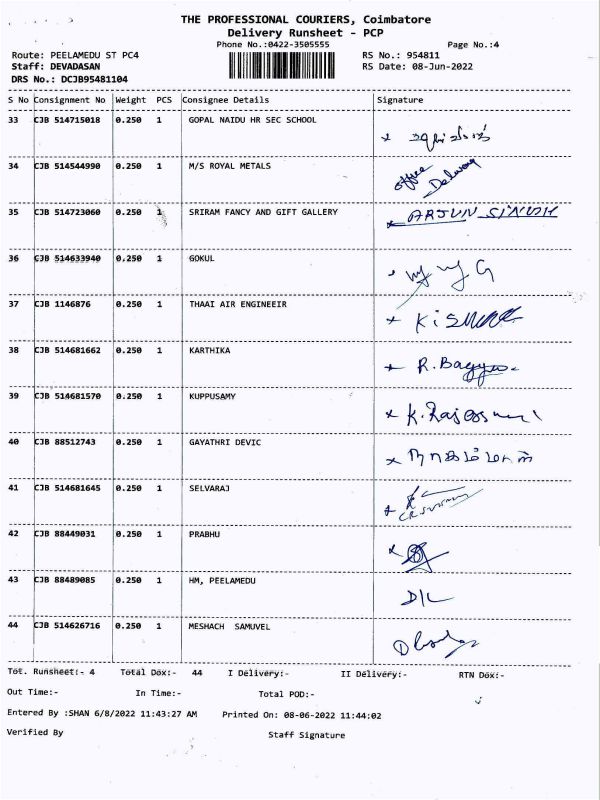 THE PROFESSIONAL COURIERS, Coimbatore
Delivery Runsheet - PCP
Phone No.:0422-3505555 Page No.:4
Route: PEELAMEDU ST PC4 RS No.: 954811
Staff: DEVADASAN RS Date: 08-Jun-2022
DRS No.: DCJB95481104
S No Consignment No Weight PCS Consignee Details Signature
33 CJB 514715018 0.250 1 GOPAL NAIDU HR SEC SCHOOL
34 CJB 514544990 0.250 1 M/S ROYAL METALS office
35 CJB 514723060 0.250 1 SRIRAM FANCY AND GIFT GALLERY ARJUN SINGH
36 CJB 514633940 0.250 1 GOKUL
37 CJB 1146876 0.250 1 THAAI AIR ENGINEEIR
38 CJB 514681662 0.250 1 KARTHIKA
39 CJB 514681570 0.250 1 KUPPUSAMY
40 CJB 88512743 0.250 1 GAYATHRI DEVIC
41 CJB 514681645 0.250 1 SELVARAJ
42 CJB 88449031 0.250 1 PRABHU
43 CJB 88489085 0.250 1 HM, PEELAMEDU D/L
44 CJB 514626716 0.250 1 MESHACH SAMUVEL
Tot. Runsheet:- 4 Total Dox:- 44 I Delivery:- II Delivery:- RTN Dox:-
Out Time:- In Time:- Total POD:-
Entered By :SHAN 6/8/2022 11:43:27 AM Printed On: 08-06-2022 11:44:02
Verified By Staff Signature